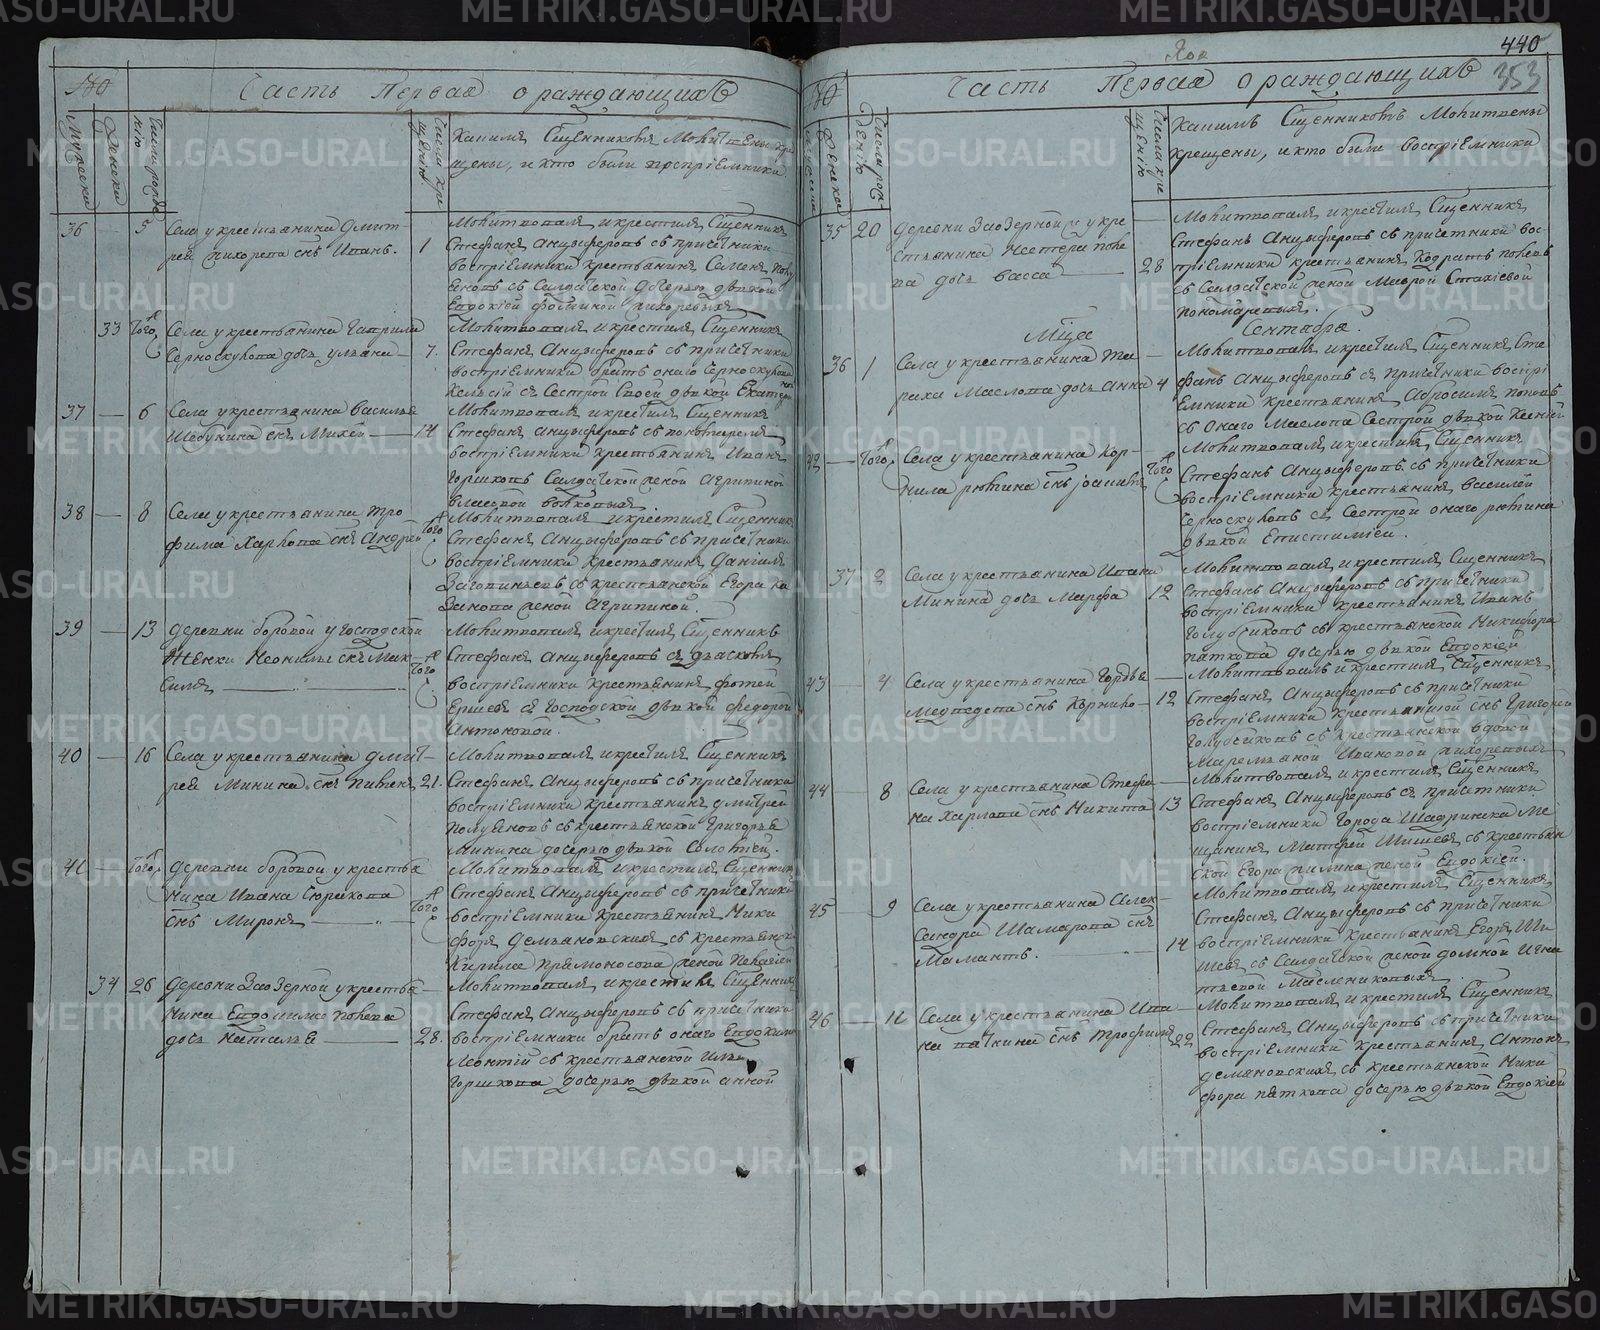 440
353
№
Часть Первая о раждающихъ
Мужеска
Женска
Числа рожде
нію
Числа кре
щенію
Каимъ Сщенникомъ Молитвены кре
щены, и кто были воспріемники
36 — 5 Села у крестьянина Дмит-
рея Лихорева снъ Иванъ. 1
Молитвовалъ и крестилъ Сщенникъ
Стефанъ Анцыферовъ съ причетники
воспріемники крестьянинъ Семенъ
съ Салдатской дочерью дѣвкой
Евдокіей Фоминой Лихоревыхъ
33 Того Села у крестьянина Гаврила
Черноскулова дочь Ульяна — 7.
Молитвовалъ и крестилъ Сщенникъ
Стефанъ Анцыферовъ съ причетники
воспріемники братъ онаго Черноскулова
съ Сестрой Своей дѣвкой Екатери
37 — 6 Села у крестьянина Василья
Шебунина снъ Михей — 14
Молитвовалъ и крестилъ Сщенникъ
Стефанъ Анцыферовъ съ пономаремъ
воспріемники крестьянинъ Иванъ
Горшковъ Салдатской женой Агрипиной
Власовой Волковыхъ.
38 — 8 Села у крестьянина Тро
фима Харлова снъ Андрей Того
Молитвовалъ и крестилъ Сщенникъ
Стефанъ Анцыферовъ съ причетники
воспріемники крестьянинъ Данила
съ крестьянской Егора Ка
закова женой Агрипиной.
39 — 13 Деревни Боровой у Господской
Женки Неонилы снъ Мак-
симъ Того
Молитвовалъ и крестилъ Сщенникъ
Стефанъ Анцыферовъ съ дьякомъ
воспріемники крестьянинъ Фотей
Ершевъ съ Господской дѣвкой Федорой
Антоновой.
40 — 16 Села у крестьянина Дмит-
рея Минина снъ Пименъ 21.
Молитвовалъ и крестилъ Сщенникъ
Стефанъ Анцыферовъ съ причетники
воспріемники крестьянинъ Дмитрей
Полуяновъ съ крестьянской Григорья
Минина дочерью дѣвкой Соломіей.
41 — Того Деревни Боровой у крестья
нина Ивана Сюрикова
снъ Миронъ Того
Молитвовалъ и крестилъ Сщенникъ
Стефанъ Анцыферовъ съ причетники
воспріемники крестьянинъ Ники
форъ Демьяновскихъ съ крестьянской
Кирила Прямоносова женой Пелагіей
34 26 Деревни Заозерной у крестья
нина Евдокима Полева
дочь Наталья — 28.
Молитвовалъ и крестилъ Сщенникъ
Стефанъ Анцыферовъ съ причетники
воспріемники братъ онаго Евдокима
Леонтій съ крестьянской Ильи
Горшкова дочерью дѣвкой Анной
№
Часть Первая о раждающихъ
Женска
Числа рож-
денію
Числа кре
щенію
Каимъ Сщенникомъ Молитвены
крещены, и кто были воспріемники
35 20 Деревни Заозерной у кре
стьянина Нестера Поле
ва дочь Васса — 28
Молитвовалъ и крестилъ Сщенникъ
Стефанъ Анцыферовъ съ причетники вос-
пріемники крестьянинъ Кодратъ Полевъ
съ Салдатской женой Маврой Стахіевой
Пономаревыхъ.
Мца Сентября.
36 1 Села у крестьянина
Маслова дочь Анна 4
Молитвовалъ и крестилъ Сщенникъ Сте
фанъ Анцыферовъ съ причетники воспрі
емники крестьянинъ Абросимъ Поповъ
съ онаго Маслова Сестрой дѣвкой
42 — Того Села у крестьянина Кор-
нила Рютина снъ Іоаникъ Того
Молитвовалъ и крестилъ Сщенникъ
Стефанъ Анцыферовъ съ причетники
воспріемники крестьянинъ Василей
Черноскуловъ съ Сестрой онаго Рютина
дѣвкой Епистиміей.
37 2 Села у крестьянина Ивана
Минина дочь Марфа 12
Молитвовалъ и крестилъ Сщенникъ
Стефанъ Анцыферовъ съ причетники
воспріемники крестьянинъ Иванъ
Голубчиковъ съ крестьянской Никифора
Пяткова дочерью дѣвкой Евдокіей
43 — 4 Села у крестьянина Гордѣя
Медвѣдева снъ Корнило — 12
Молитвовалъ и крестилъ Сщенникъ
Стефанъ Анцыферовъ съ причетники
воспріемники крестьянской снъ Григорей
Голубчиковъ съ крестьянской вдовой
Маремьяной Ивановой Лихоревыхъ
44 — 8 Села у крестьянина Стефа-
на Харлова снъ Никита 13
Молитвовалъ и крестилъ Сщенникъ
Стефанъ Анцыферовъ съ причетники
воспріемники Города Шадринска Мѣ
щанинъ Матфей Шишевъ съ крестьян
ской Егора Пимина женой Евдокіей.
45 — 9 Села у крестьянина Алек-
сандра Шамарова снъ
Мамантъ. 14
Молитвовалъ и крестилъ Сщенникъ
Стефанъ Анцыферовъ съ причетники
воспріемники крестьянинъ Егоръ Ши
шевъ съ Салдатской женой Домной Игна
тьевой Маслениковыхъ.
46 — 11 Села у крестьянина Ива-
на Пачкина снъ Трофимъ 22
Молитвовалъ и крестилъ Сщенникъ
Стефанъ Анцыферовъ съ причетники
воспріемники крестьянинъ Антонъ
Демяновскихъ съ крестьянской Ники
фора Пяткова дочерью дѣвкой Евдокіей
METRIKI.GASO-URAL.RU